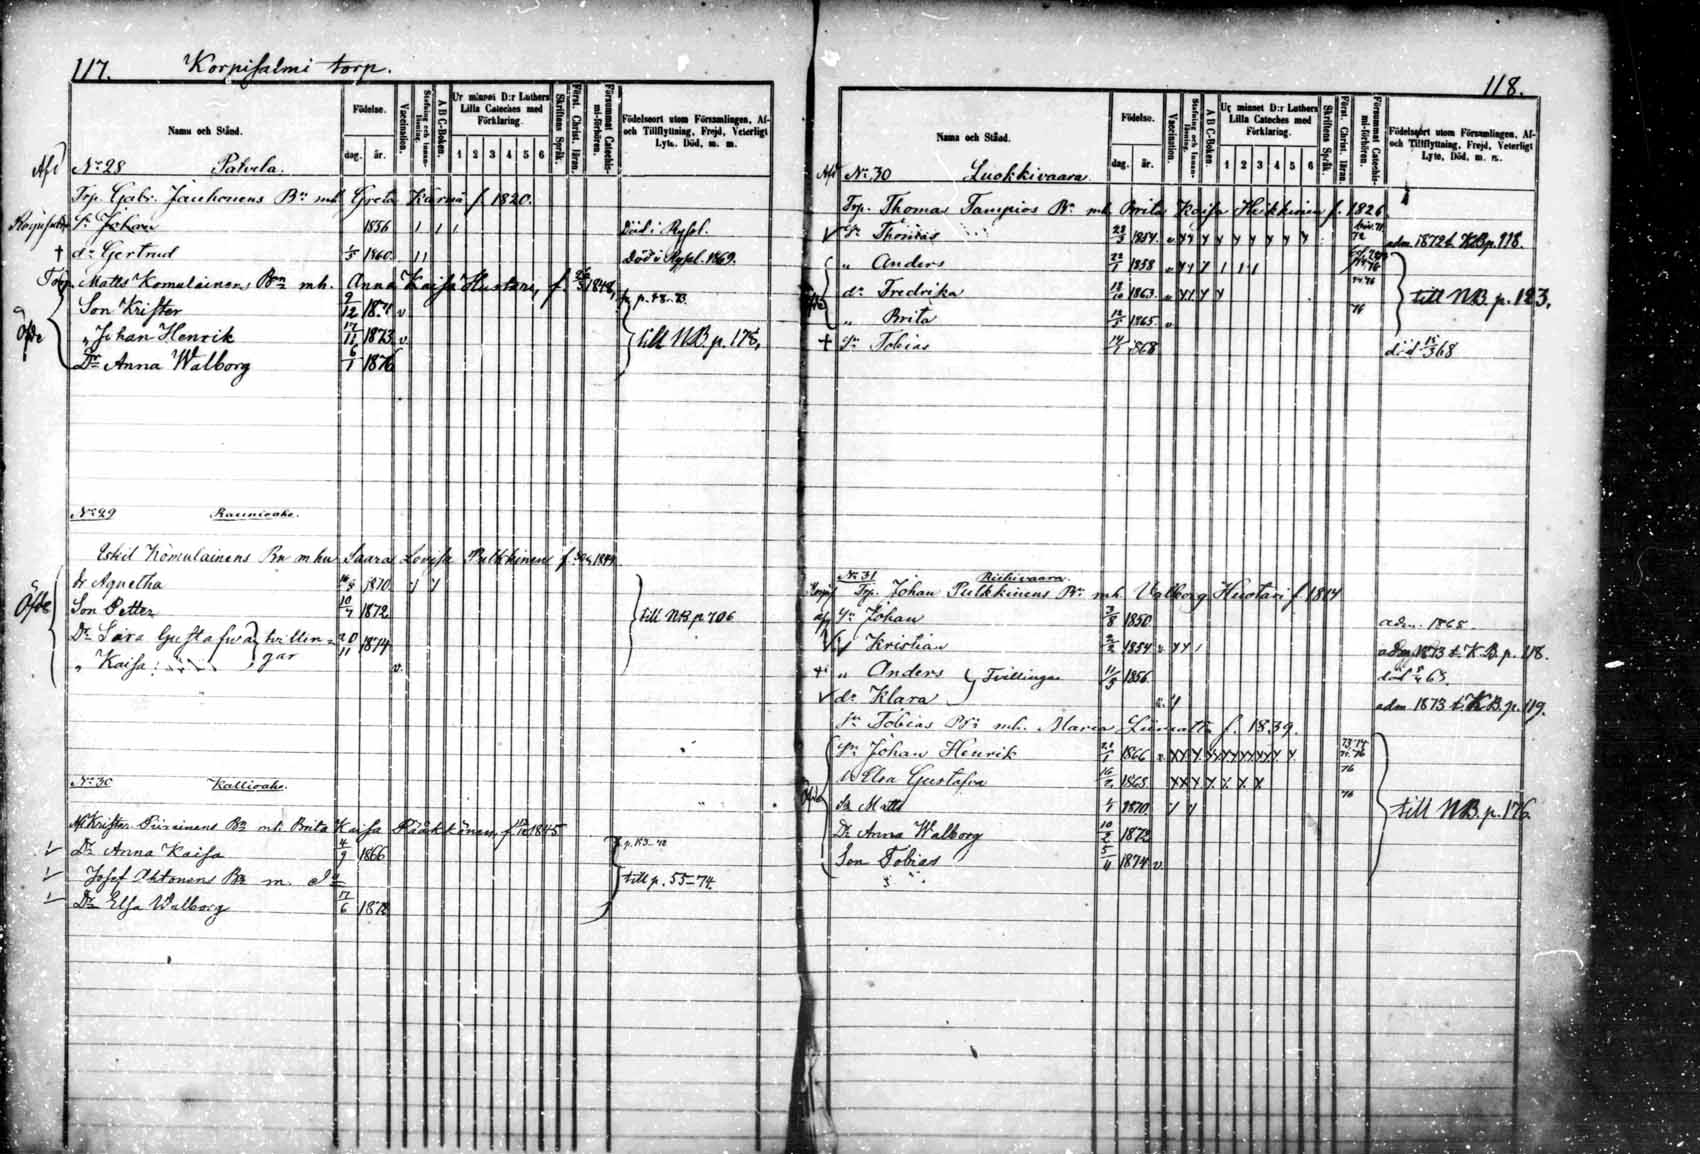 117. Korpisalmi torp.
Namn och Stånd.
Födelse.
dag. år.
Vaccination.
Stafning och Innan-läsning.
A B C-Boken.
Ur minnet D:r Luthers Lilla Cateches med Förklaring.
1 2 3 4 5 6
Skriftens Språk.
Först. Christ. läran.
Försummat Catechis-mi-förhören.
Födelseort utom Församlingen, Af- och Tillflyttning, Frejd, Veterligt Lyte, Död, m. m.
No 28 Palvela.
Trp. Gabr. Jauhonens Bn mh Greta Kärnä f. 1820.
Sn Johan 1856 Död i Ryssl.
+ dr Gertrud 1/5 1860 Död i Ryssl. 1869.
Torp. Matts Komulainens Bn mh. Anna Kaisa Hustari, f. 1848,
Son Krister 9/12 v.
" Johan Henrik 17/11 1873 v. till NB p. 178,
Dr Anna Walborg 6/1 1876
No 29 Raunioaho.
Eskil Komulainens Bn m hu Saara Lovisa Pulkkinen f. 1844
dr Agnetha 1870
Son Petter 10/7 1872 till NB p 706
Dr Sara Gustafwa tvillin- 20/11 1874
" Kaisa gar v.
No 30 Kallioaho.
Krister Piirainens Bn mh Brita Kaisa Pääkkönen, f. 1845
Dr Anna Kaisa 4/9 1866
Josef Ahtonens Bn m. till p. 55-74.
Dr Elsa Walborg 17/6 1872
118.
Namn och Stånd.
Födelse.
dag. år.
Vaccination.
Stafning och Innan-läsning.
A B C-Boken.
Ur minnet D:r Luthers Lilla Cateches med Förklaring.
1 2 3 4 5 6
Skriftens Språk.
Först. Christ. läran.
Försummat Catechis-mi-förhören.
Födelseort utom Församlingen, Af- och Tillflyttning, Frejd, Veterligt Lyte, Död, m. m.
No 30 Luokkivaara
Trp. Thomas Tampios Bn mh Brita Kaisa Heikkinen f. 1826
Sn Thomas 1854 72 adm. 1872 t. KB p. 118.
" Anders 1858
dr Fredrika 1863 till NB p. 123.
" Brita 1865 76
+ Sn Tobias 1868 död 68
No 31 Riihivaara.
Trp. Johan Pulkkinens Bn mh Valborg Huotari f 1814
Sn Johan 3/8 1850 adm. 1868.
" Kristian 1854 adm 1873 t. K.B. p. 118.
" Anders Tvillingar 11/5 1856
dr Klara adm 1873 t. KB. p. 119.
Sn Tobias Bn mh. Maria f. 1839.
Sn Johan Henrik 1866
dr Elsa Gustafva 1868 76
Sn Matts 1870 76 till NB p. 176
Dr Anna Walborg 10/2 1872
Son Tobias 5/11 1874 v.